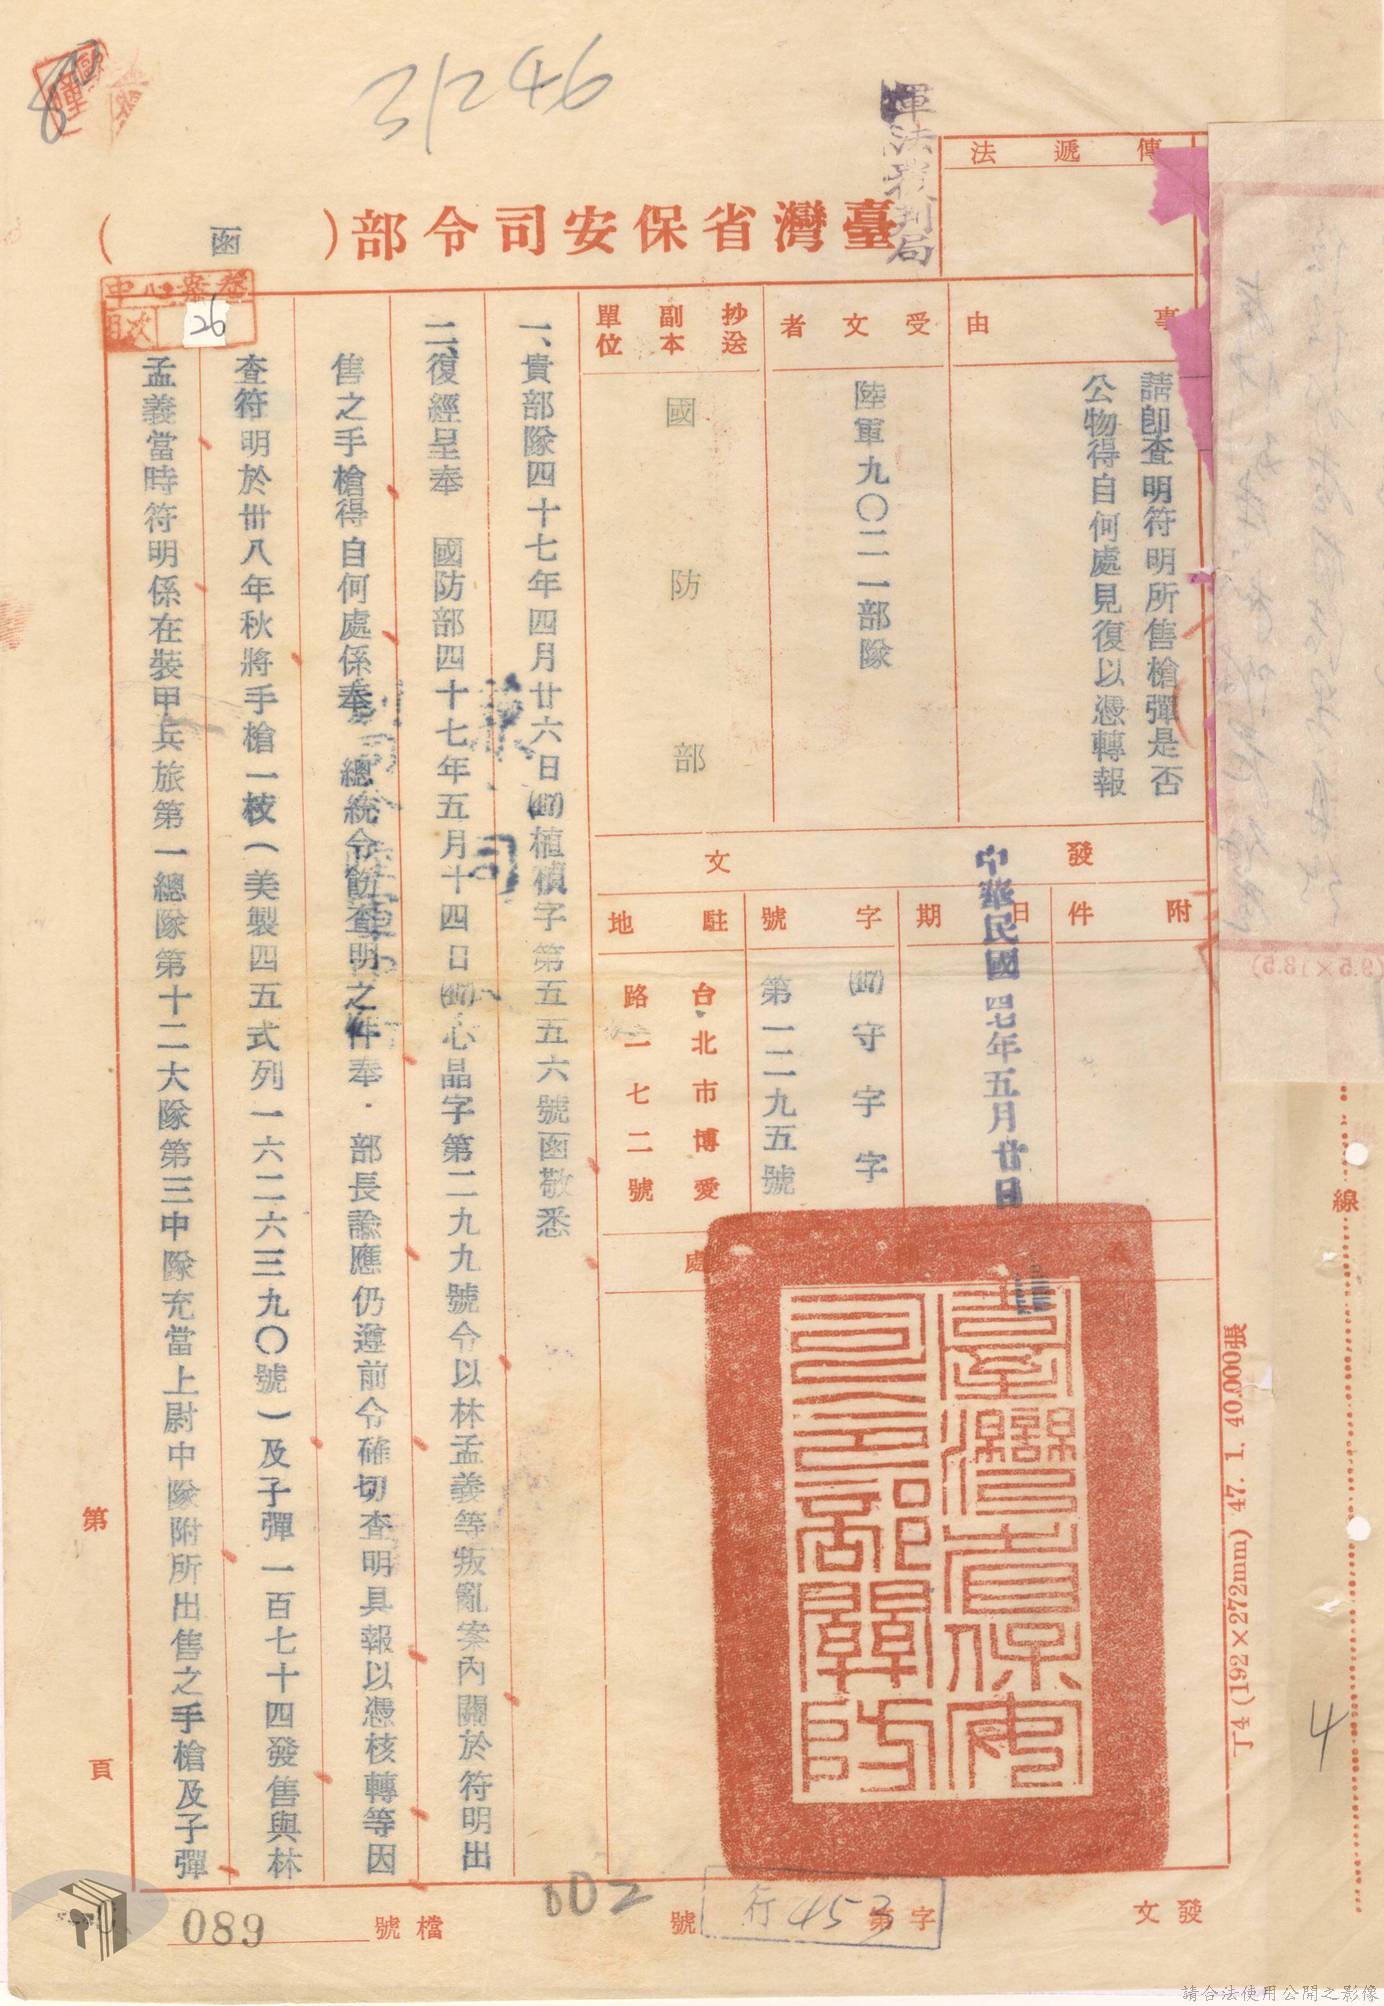 31246
軍法覆判局
臺灣省保安司令部(函)
傳遞法
事由
請即查明符明所售槍彈是否
公物得自何處見復以憑轉報
受文者
陸軍九〇二一部隊
抄送副本單位
國防部
發文
附件
日期
中華民國四七年五月廿日
字號
(47)守字字
第一二九五號
駐地
台北市博愛
路一七二號
處
臺灣省保安
司令部關防
一、貴部隊四十七年四月廿六日(47)植楨字第五五六號函敬悉
二、復經呈奉 國防部四十七年五月十四日(47)心晶字第二九九號令以林孟義等叛亂案內關於符明出
售之手槍得自何處係奉 總統令飭查明之件奉·部長諭應仍遵前令確切查明具報以憑核轉等因
查符明於卅八年秋將手槍一枝(美製四五式列一六二六三九〇號)及子彈一百七十四發售與林
孟義當時符明係在裝甲兵旅第一總隊第十二大隊第三中隊充當上尉中隊附所出售之手槍及子彈
檔案中心
目次
26
第 頁
線
丁4(192×272mm) 47. 1. 40.000張
(9.5×18.5)
4
發文
字第 號
行453
002
檔號
089
請合法使用公開之影像